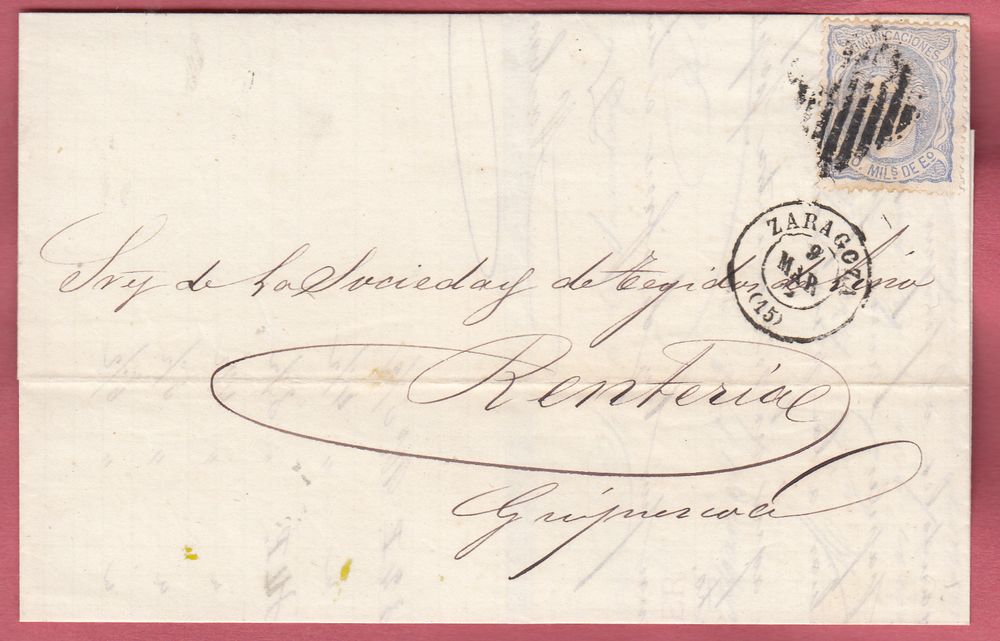 COMUNICACIONES
MILS DE Eo
ZARAGOZA
9
MAR
(15)
Sres de La Sociedad de Tegidos de Lino
Renteria
Guipuzcoa